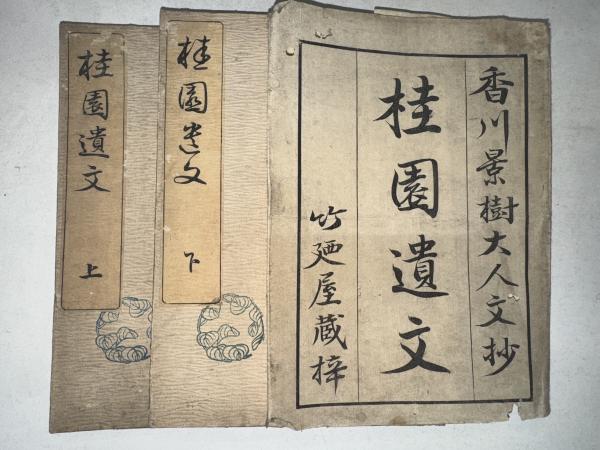 香川景樹大人文抄
桂園遺文
竹廼屋蔵梓
桂園遺文 下
桂園遺文 上